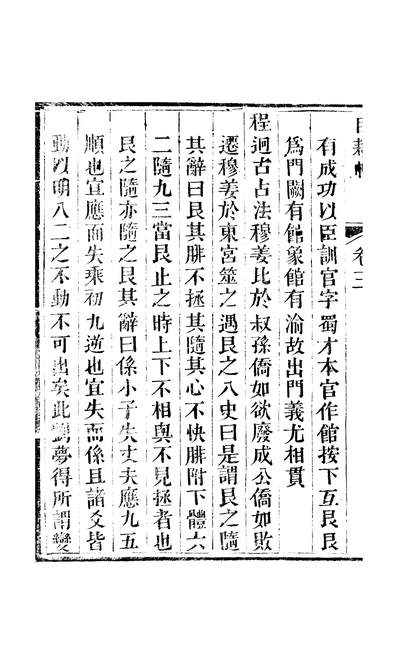 卷三
有成功以臣訓官字蜀才本官作館按下互艮艮
爲門闕有館象館有渝故出門義尤相貫
程迥古占法穆姜比於叔孫僑如欲廢成公僑如敗
遷穆姜於東宮筮之遇艮之八史曰是謂艮之隨
其辭曰艮其腓不拯其隨其心不快腓附下體六
二隨九三當艮止之時上下不相與不見拯者也
艮之隨亦隨之艮其辭曰係小子失丈夫應九五
順也宜應而失乘初九逆也宜失而係且諸爻皆
動以明八二之不動不可出矣此夢得所謂變